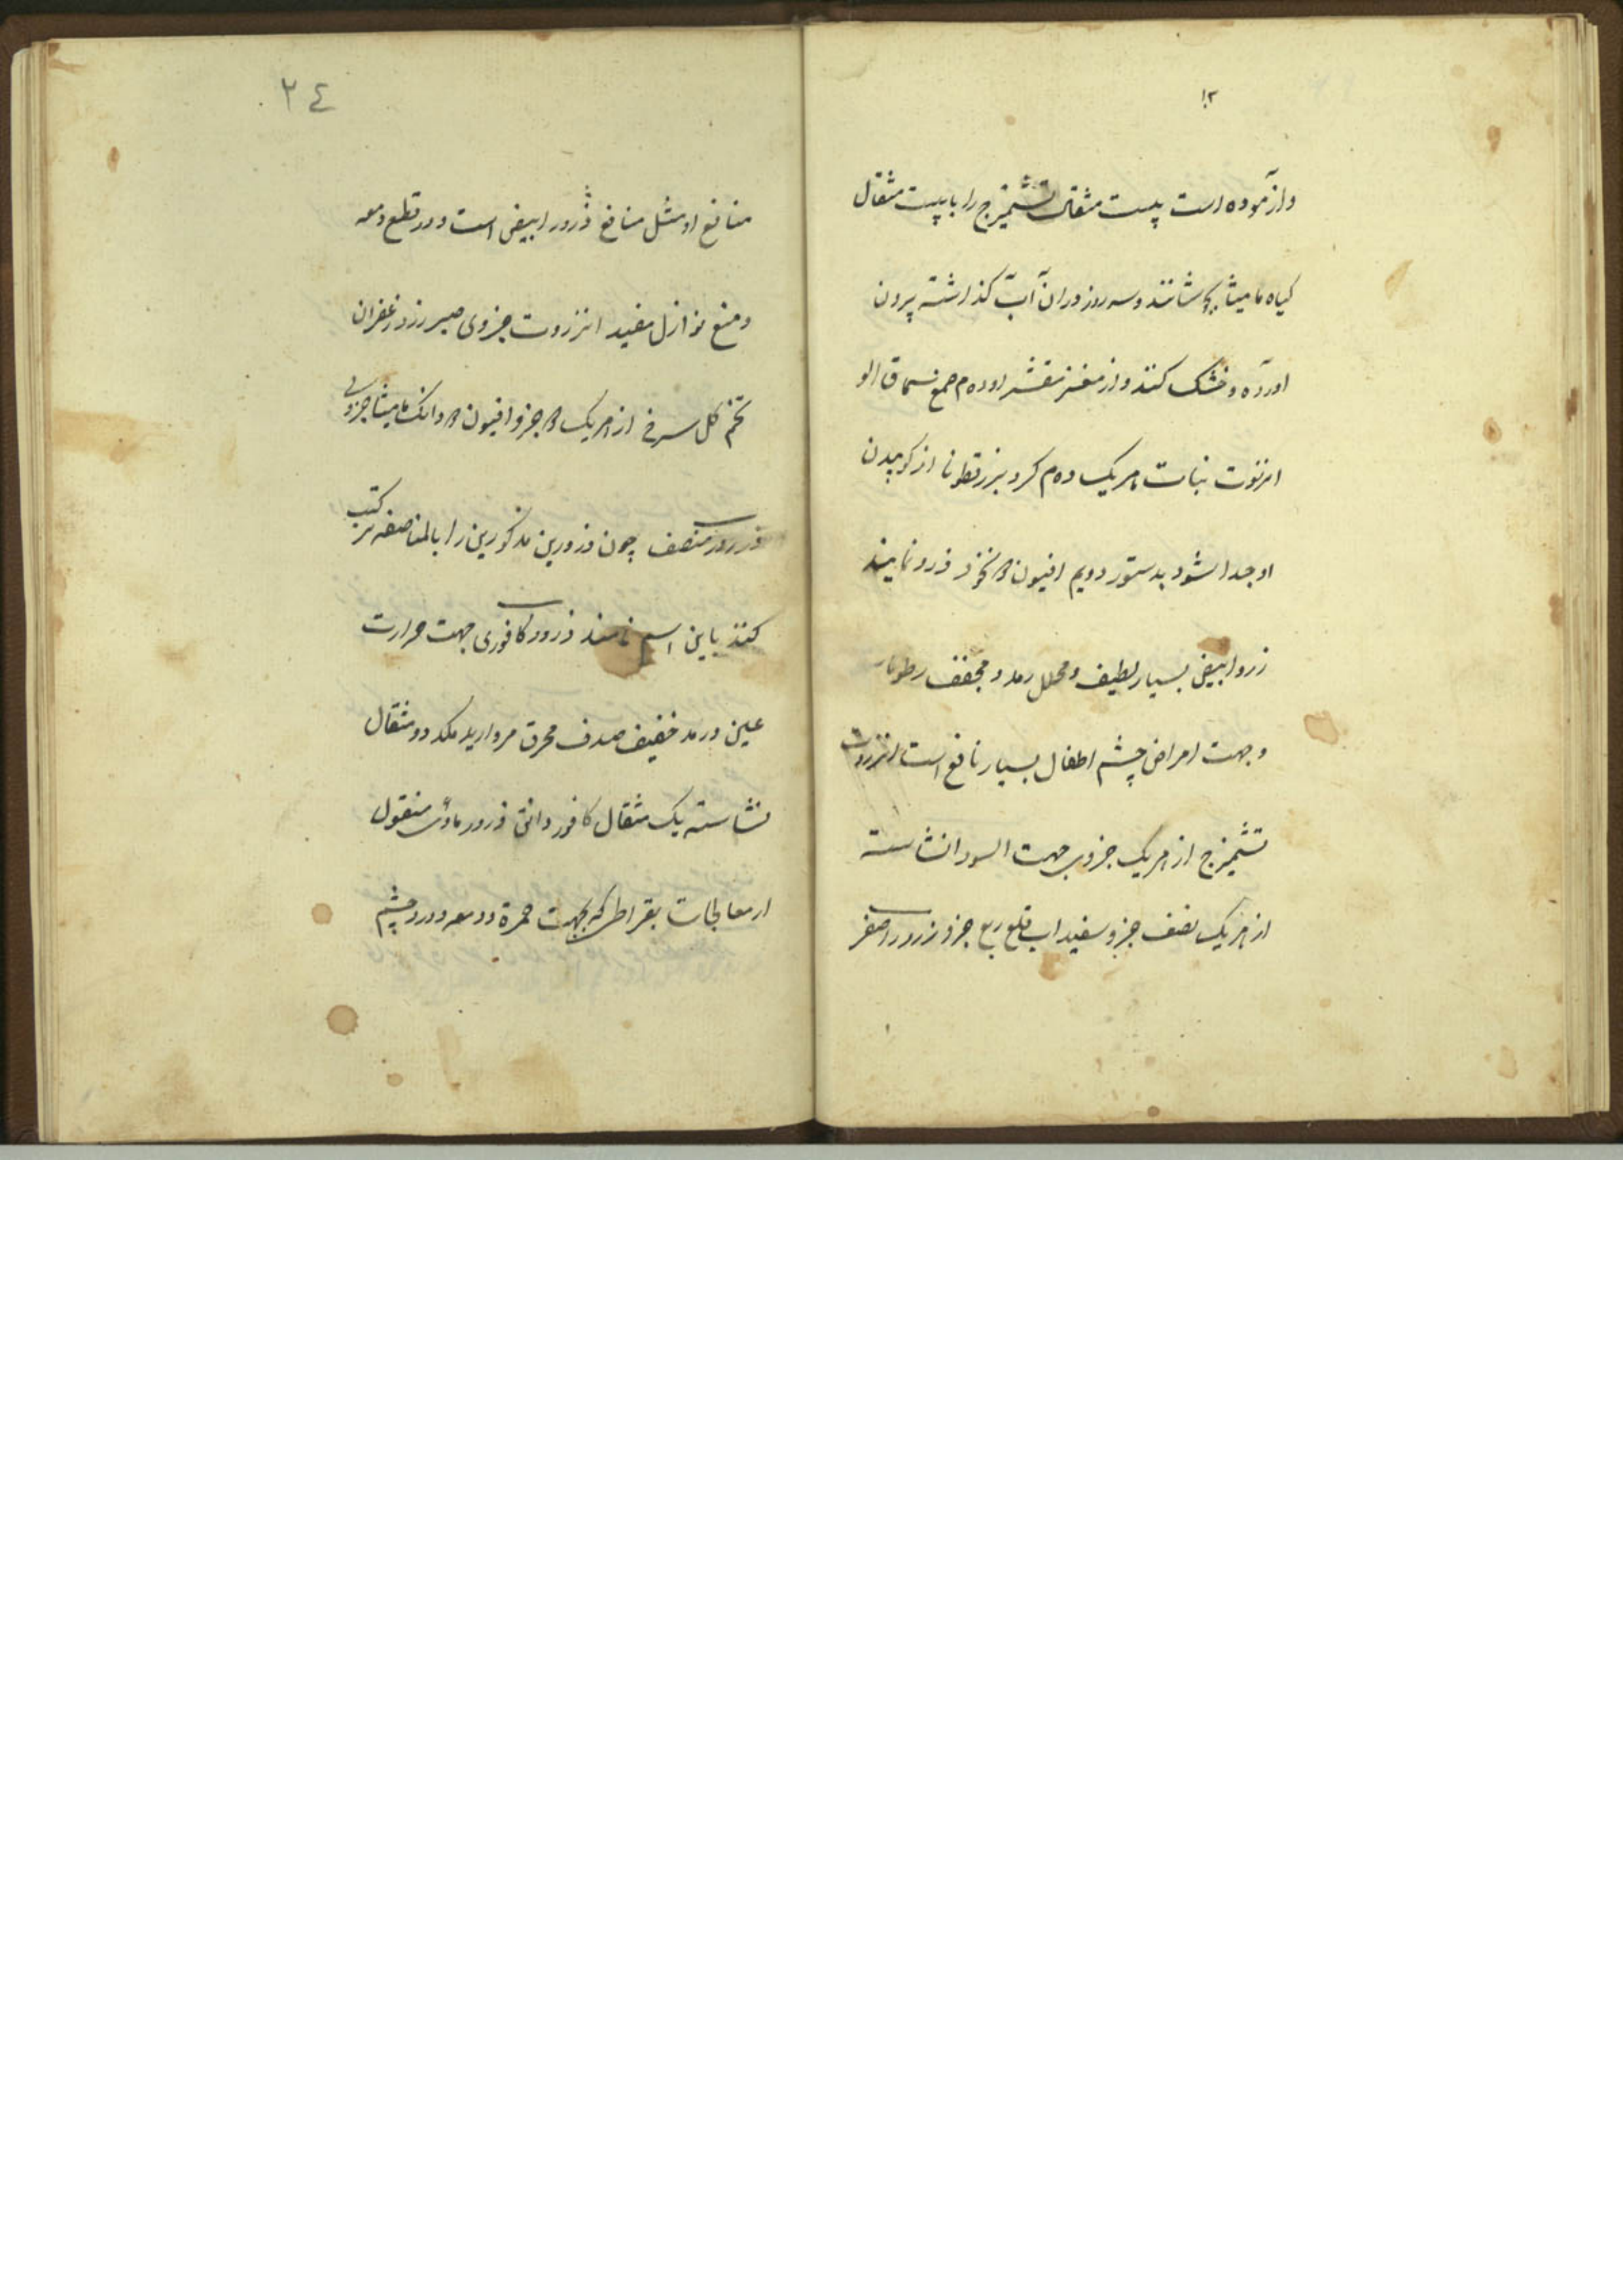 ۱۳
وازموده است پیست مثقال تشمیزج را با پیست مثقال
کیاه مامیثا بجوشانند و سه روز دران آب کذاشته پرون
اورده و خشک کنند و از مغز مقشر او ده م صمغ سماق الو
انزروت نبات هریک ده م کرد بزرقطونا از کوپیدن
او جدا شود بدستور دویم افیون ذرور نمایند
زرور ابیض بسیار لطیف و محلل رمد و مجفف رطوبات
و جهت امراض چشم اطفال بسیار نافع است انزروت
تشمیزج از هریک جزوی جهت السودا نشاسته
از هریک نصف جزو سفیداب قلع ربع جزو زرور اصفر
۲٤
منافع او مثل منافع ذرور ابیض است و در قطع دمعه
و منع نوازل مفید انزروت جزوی صبر زرد زعفران
تخم کل سرخ از هریک جزو افیون دانک مامیثا جزوی
ذرور منصف چون ذرورین مذکورین را بالمناصفه ترکیب
کنند باین اسم نامند ذرور کافوری جهت حرارت
عین و رمد خفیف صدف محرق مروارید دو مثقال
نشاسته یک مثقال کافور دانق ذرور ماوی منقول
از معالجات بقراط که بجهت حمرة و دمعه و درد چشم